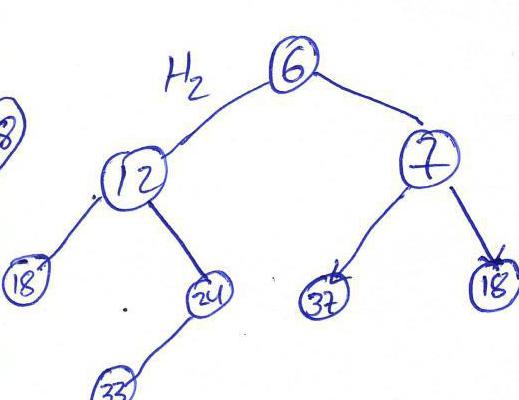 H₂
6
8
12
7
18
24
37
18
33